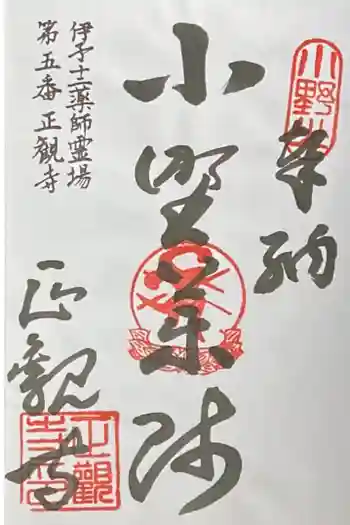 奉納
小野薬師
伊予十二薬師霊場
第五番正観寺
正観寺
小野山
正觀寺印